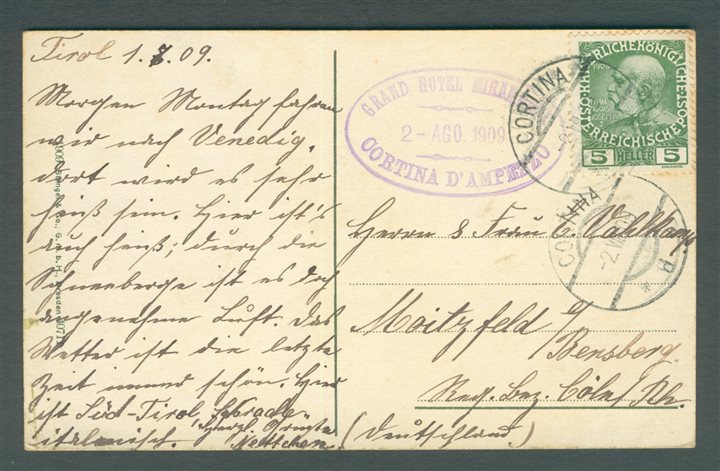 Tirol 1.8.09.
Morgen Montag fahren
wir nach Venedig,
dort wird es sehr
heiß sein. Hier ist's
auch heiß; durch die
Schneeberge ist es doch
angenehme Luft. Das
Wetter ist die letzte
Zeit immer schön. Hier
ist Süd-Tirol, Sprache
italienisch. Herzl. Grüße
Nettchen
GRAND HOTEL
2-AGO.1909
CORTINA D'AMPEZZO
CORTINA
5 HELLER 5
Herrn & Frau C. Vahlkamp
Moitzfeld b/
Bensberg.
Reg. bez. Cöln/Rh.
(Deutschland)